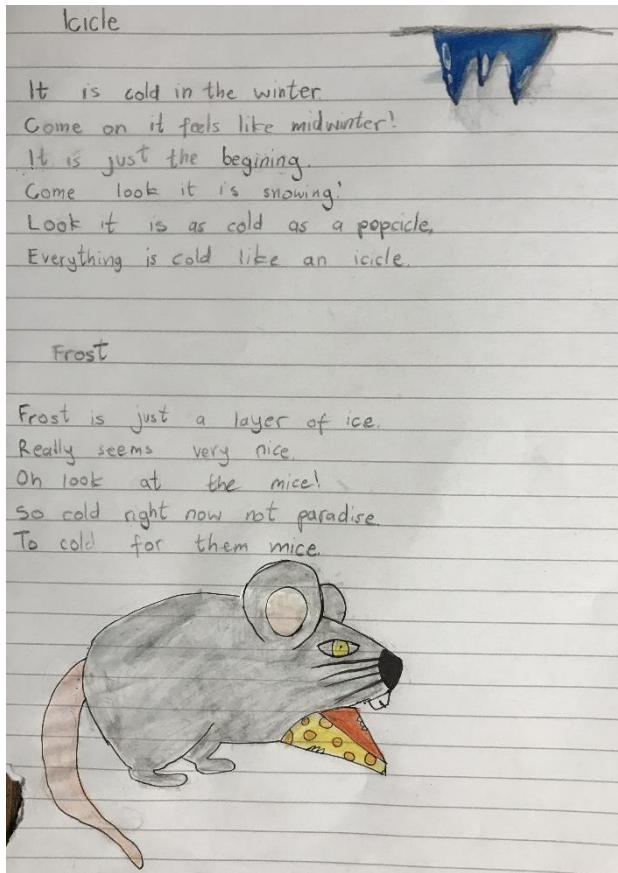 Icicle
It is cold in the winter
Come on it feels like midwinter!
It is just the begining.
Come look it is snowing!
Look it is as cold as a popcicle,
Everything is cold like an icicle.
Frost
Frost is just a layer of ice.
Really seems very nice.
Oh look at the mice!
So cold right now not paradise.
To cold for them mice.